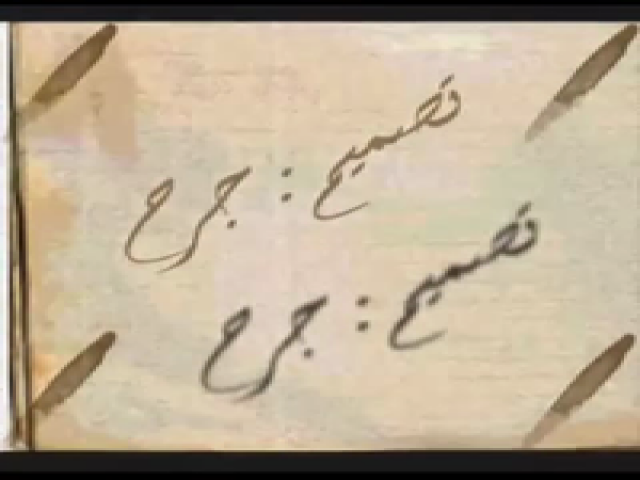 تصميم : جرح
تصميم : جرح